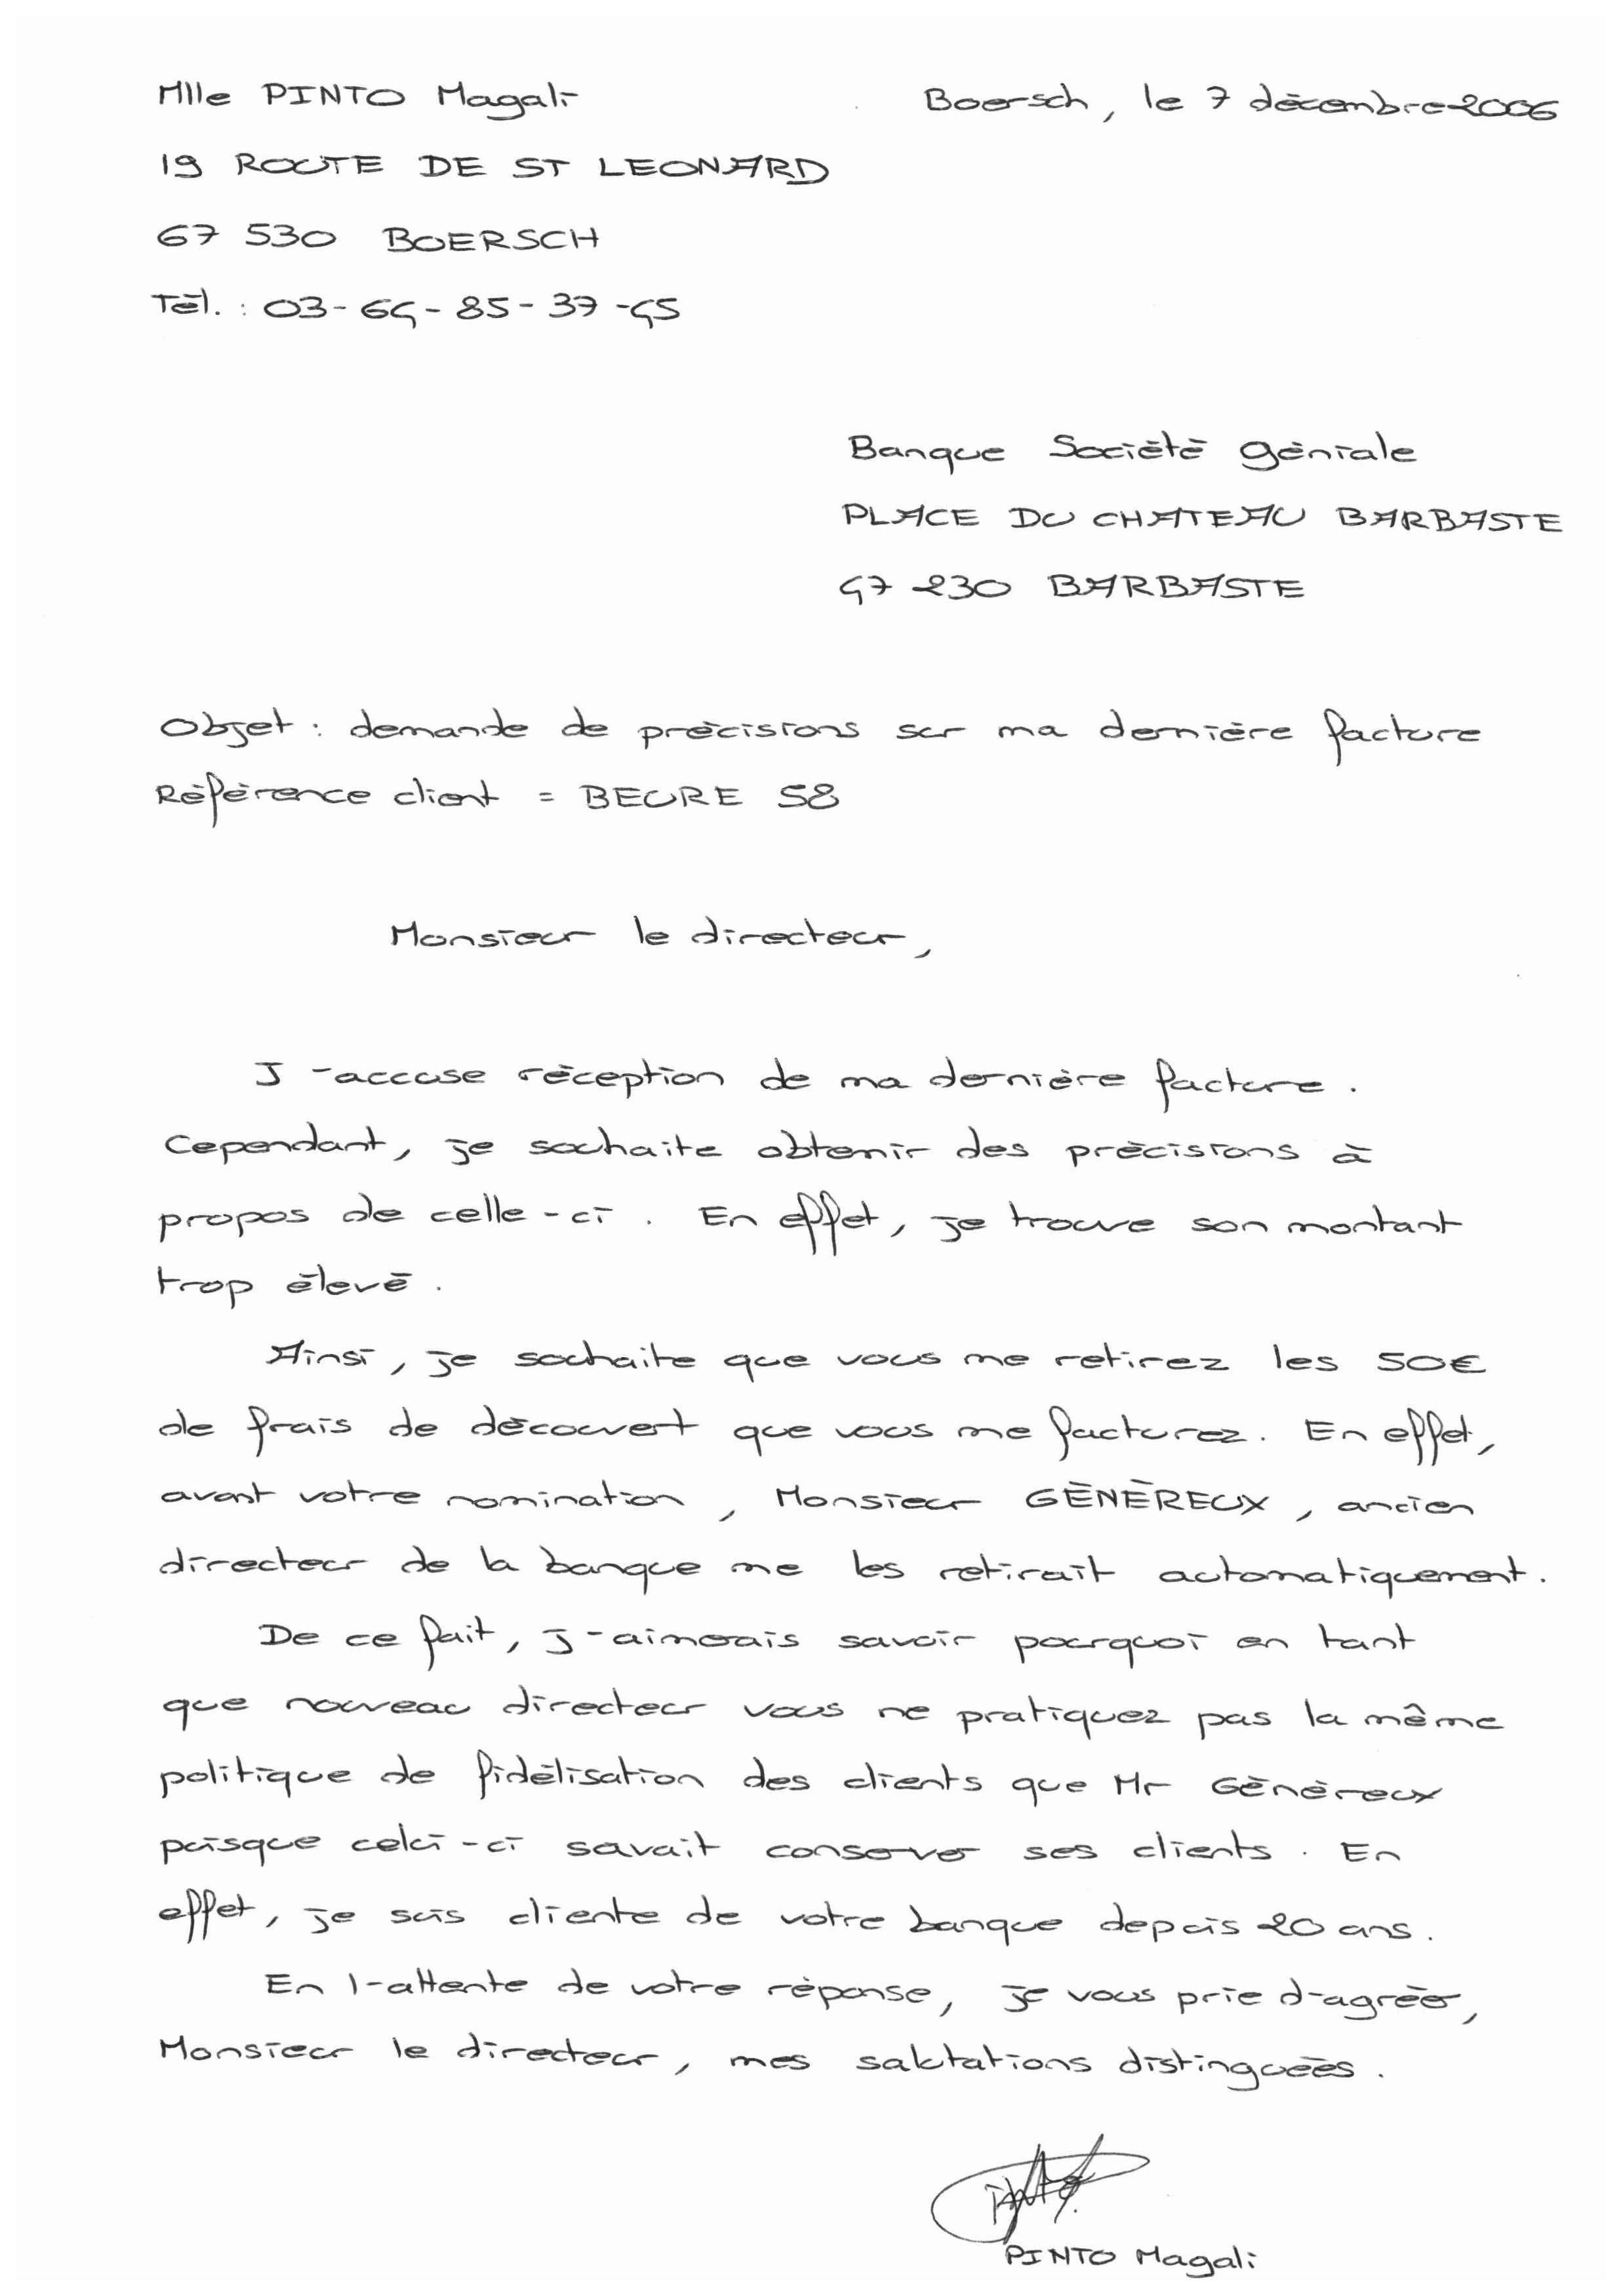 Mlle PINTO Magali
Boersch, le 7 décembre 2006
19 ROUTE DE ST LEONARD
67 530 BOERSCH
Tél. : 03-64-85-37-45
Banque Société Géniale
PLACE DU CHATEAU BARBASTE
47 230 BARBASTE
Objet : demande de précisions sur ma dernière facture
Référence client = BEURE 58
Monsieur le directeur,
J'accuse réception de ma dernière facture.
Cependant, je souhaite obtenir des précisions à
propos de celle-ci. En effet, je trouve son montant
trop élevé.
Ainsi, je souhaite que vous me retirez les 50€
de frais de découvert que vous me facturez. En effet,
avant votre nomination, Monsieur GÉNÉREUX, ancien
directeur de la banque me les retirait automatiquement.
De ce fait, j'aimerais savoir pourquoi en tant
que nouveau directeur vous ne pratiquez pas la même
politique de fidélisation des clients que Mr Généreux
puisque celui-ci savait conserver ses clients. En
effet, je suis cliente de votre banque depuis 20 ans.
En l'attente de votre réponse, je vous prie d'agréer,
Monsieur le directeur, mes salutations distinguées.
PINTO
PINTO Magali